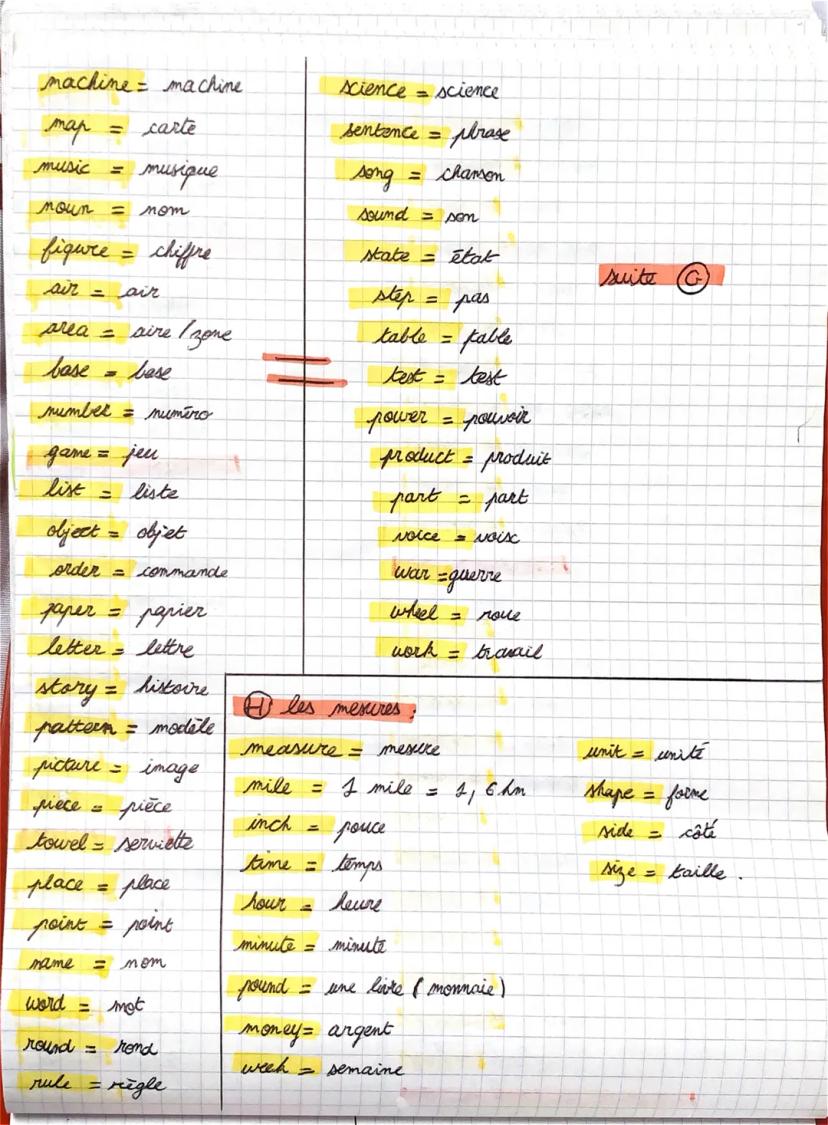 machine = machine
map = carte
music = musique
noun = nom
figure = chiffre
air = air
area = aire / zone
base = base
number = numéro
game = jeu
list = liste
object = objet
order = commande
paper = papier
letter = lettre
story = histoire
pattern = modèle
picture = image
piece = pièce
towel = serviette
place = place
point = point
name = nom
word = mot
round = rond
rule = règle
science = science
sentence = phrase
song = chanson
sound = son
state = état
step = pas
table = table
test = test
power = pouvoir
product = produit
part = part
voice = voix
war = guerre
wheel = roue
work = travail
suite G
H les mesures :
measure = mesure
mile = 1 mile = 1,6 km
inch = pouce
time = temps
hour = heure
minute = minute
pound = une livre (monnaie)
money = argent
week = semaine
unit = unité
shape = forme
side = côté
size = taille .